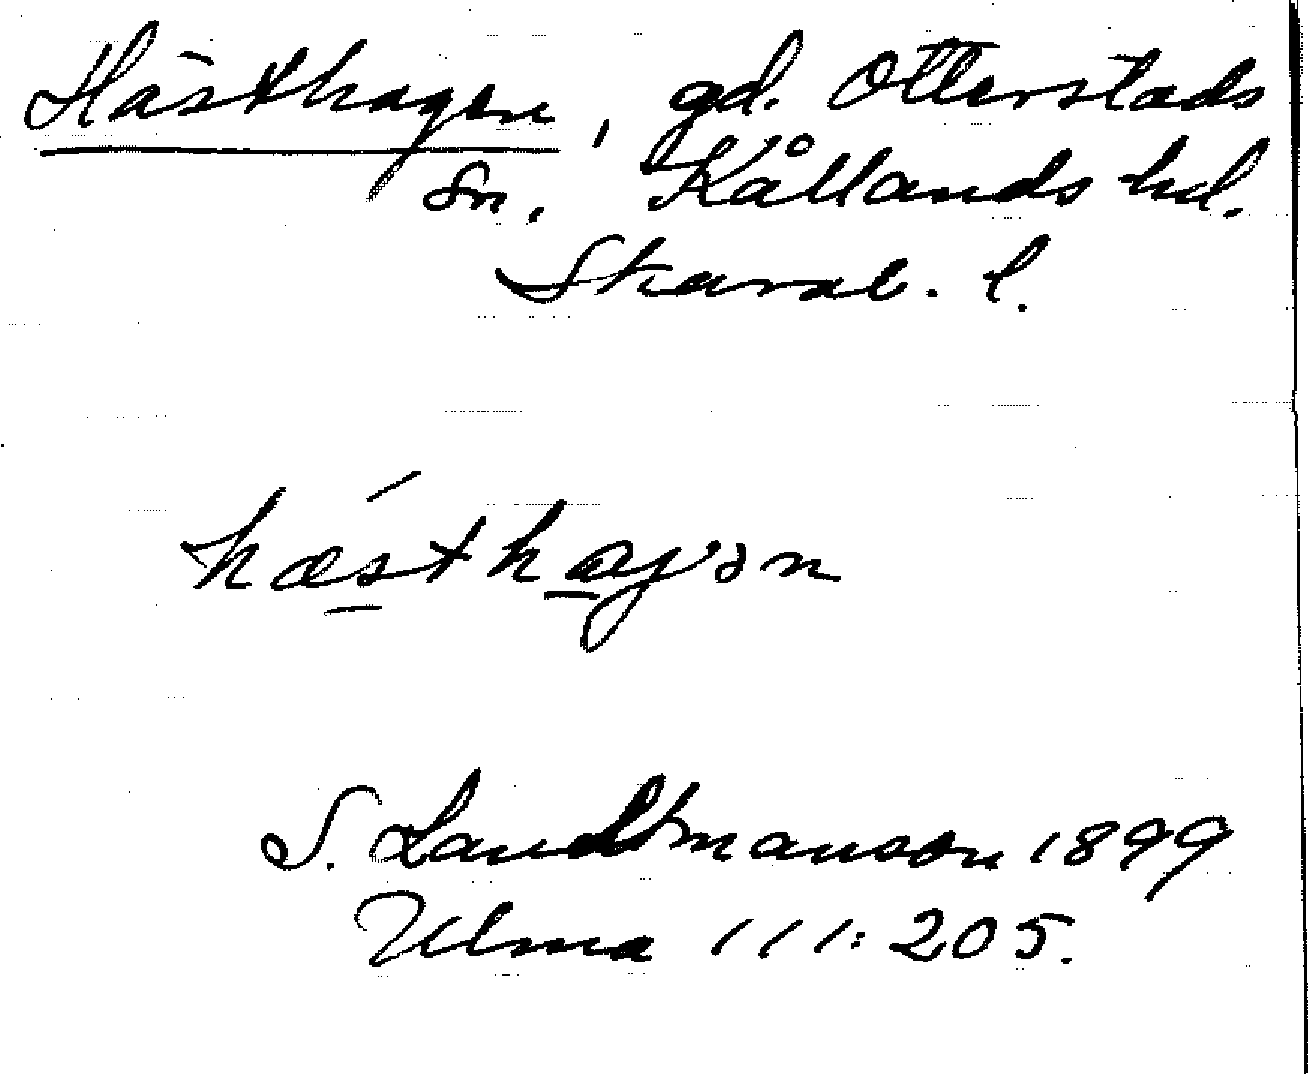 Hästhagen, gd. Otterstads
sn, Kållands hd.
Skarab. l.
hæsthagən
S. Landtmanson 1899
Ulma 111:205.